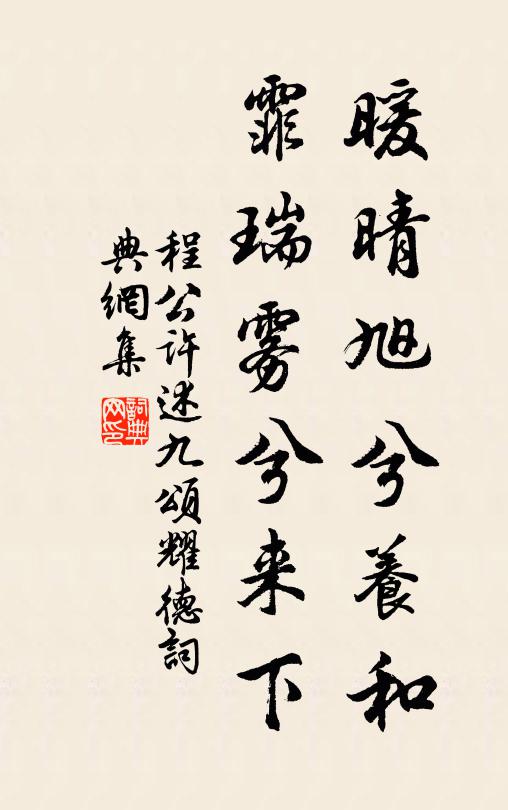 暖晴旭兮養和
霏瑞雾兮来下
程公许述九頌耀德詞
典網集
詞典网印